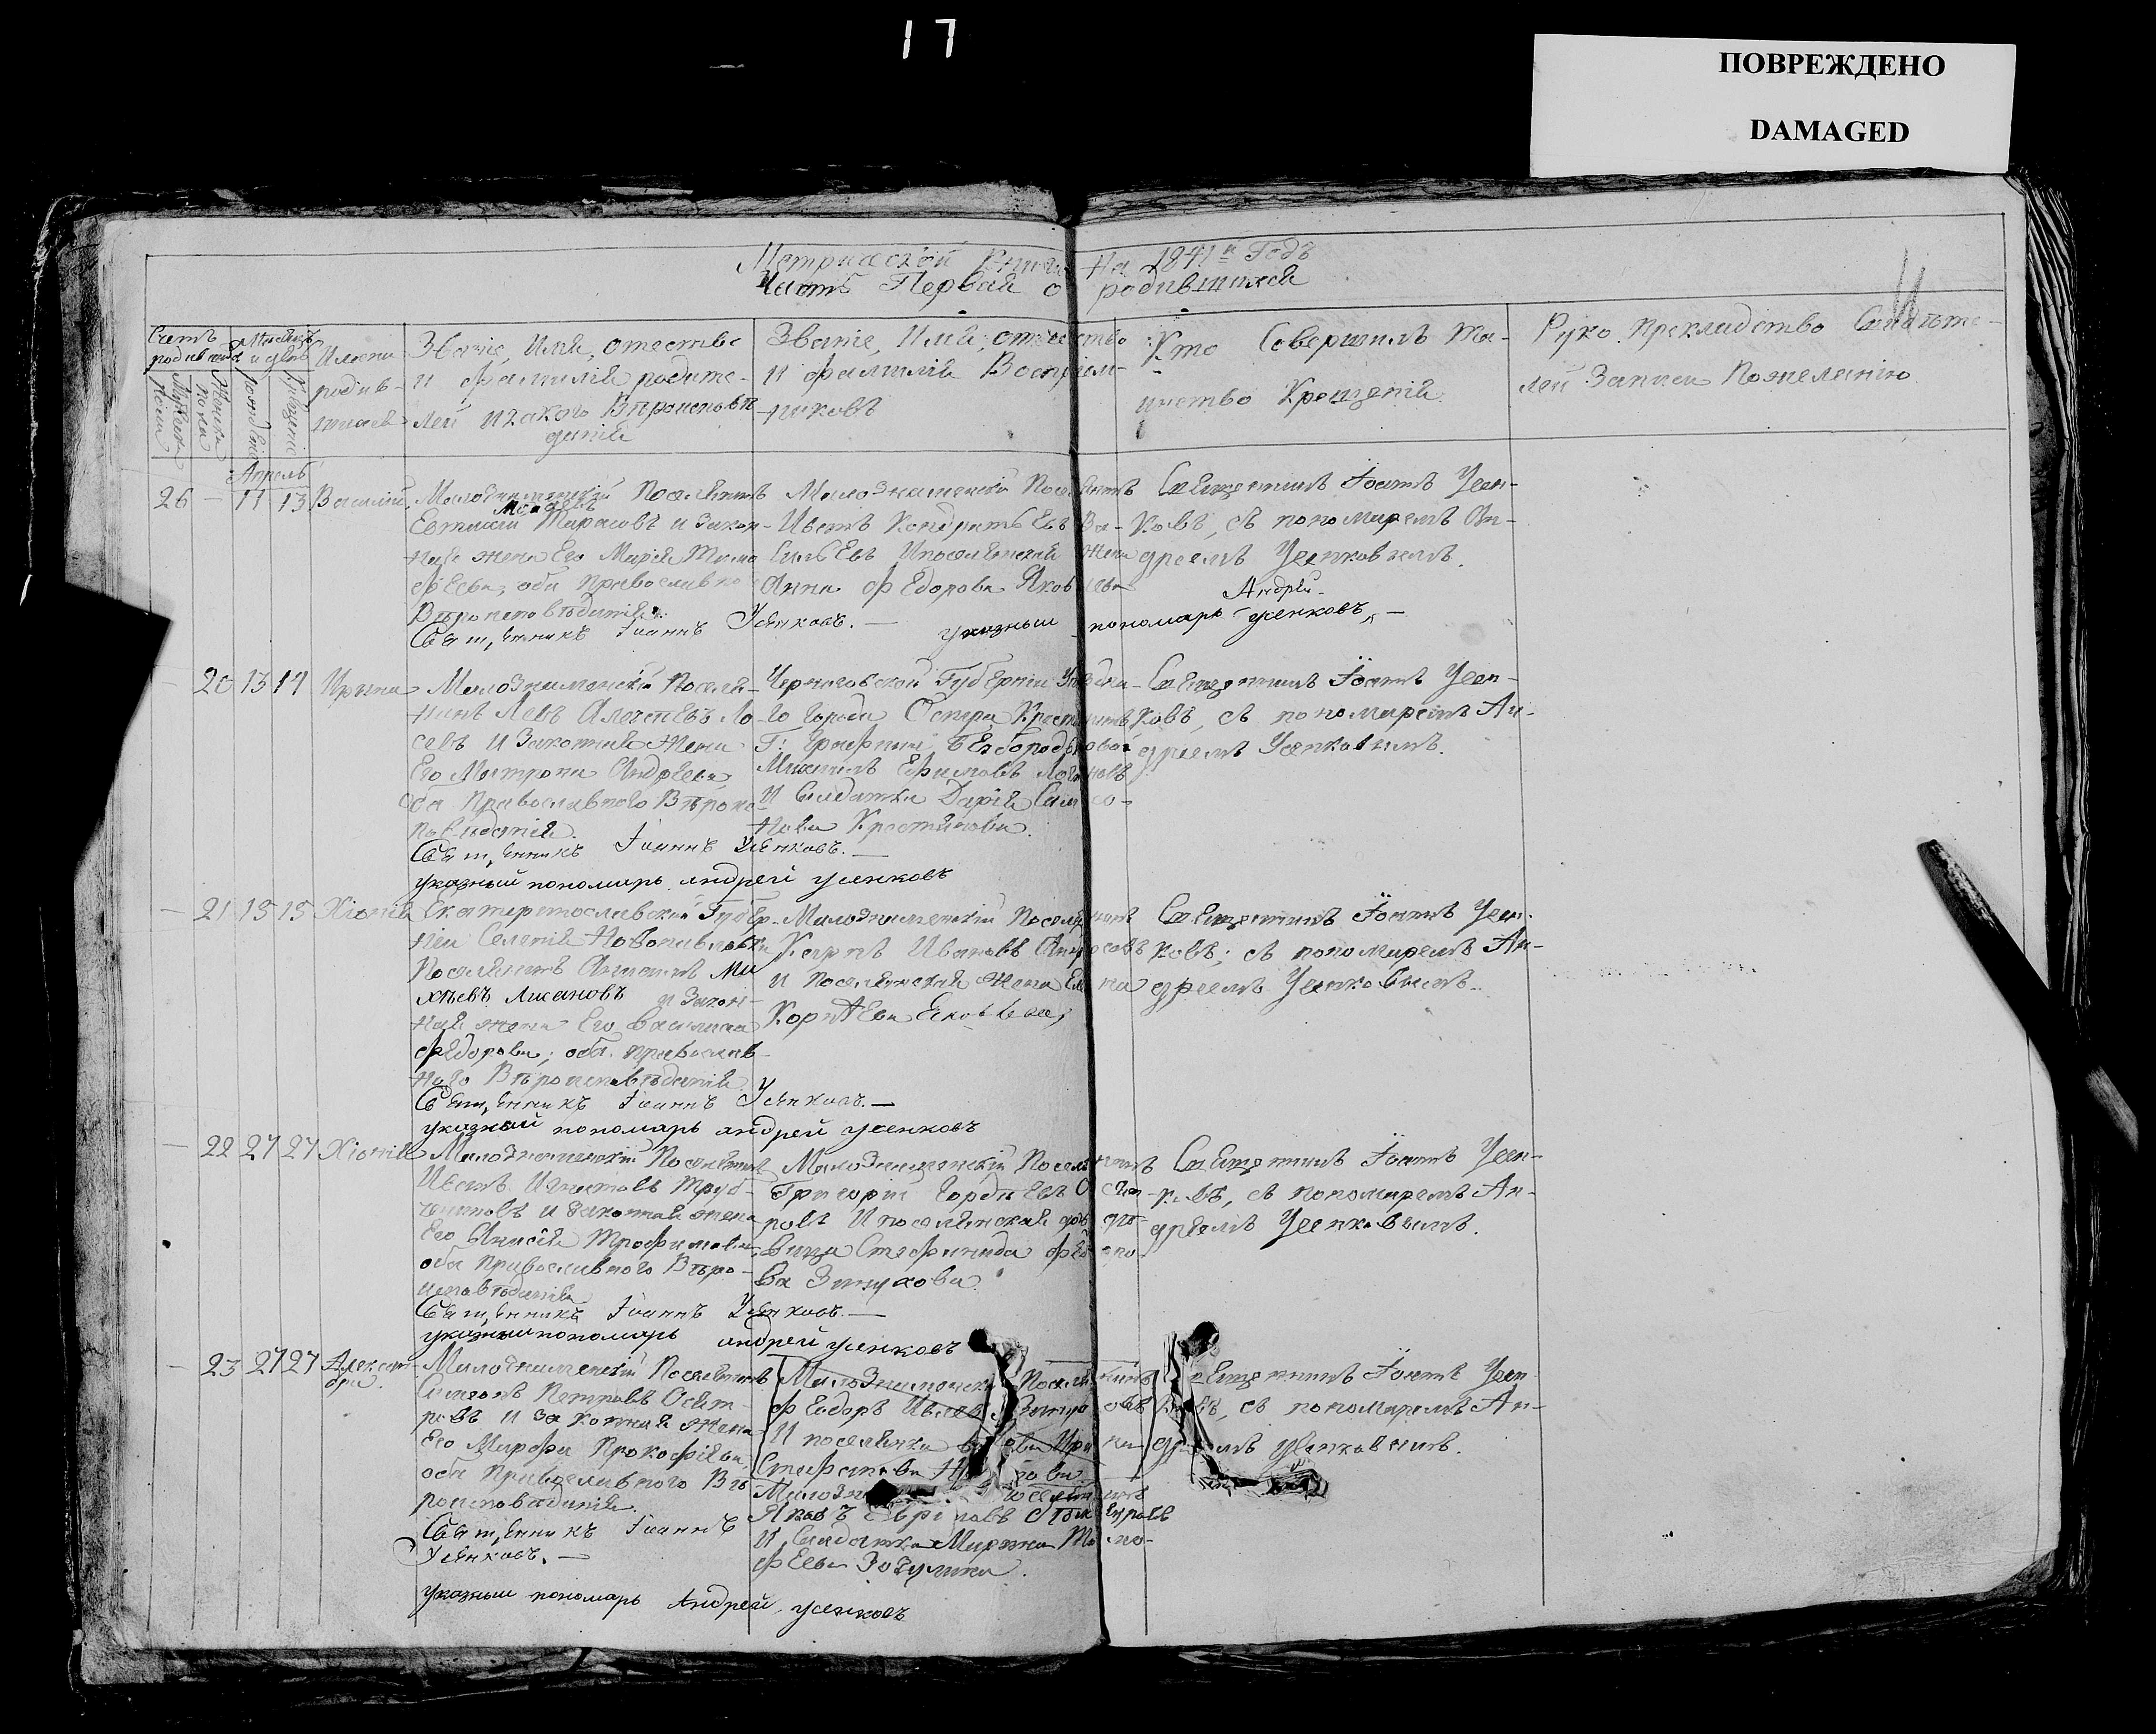 17
ПОВРЕЖДЕНО
DAMAGED
Метрической Книги На 1841й Годъ
Часть Первая о родившихся
Счетъ родившихся
Мужеска пола
Женска пола
Мѣсяцъ и день
рожденія
крещенія
Имена
родив-
шихся
Званіе, Имя, отество
и фамилія родите-
лей и какого Вѣроисповѣ
данія
Званіе, Имя, отчество
и фамилія Воспріем-
никовъ
Кто Совершилъ Та-
инство Крещенія
Руко прикладство Свидѣте-
лей Записи Пожеланію
Апрель
26 - 11 13 Василій
Малознаменскій Поселянинъ
Евтихій Тарасовъ и Закон-
ная жена Его Марія Тимо
фЕева, оба православно
Вѣроисповѣданія
Священникъ Іоаннъ Усенковъ. —
Малознаменскій Поселянинъ
Иванъ Кондратьевъ Ва-
сильЕвъ Ипоселянская Жена
Анна фЕдорова Яковлева
указный пономарь Андрей усенковъ —
Священникъ Іоаннъ Усен-
ковъ, съ пономаремъ Ан-
дреемъ Усенковымъ.
— 20 13 14 Ирина
Малознаменскій Поселя-
нинъ Левъ АлексѣЕвъ Ло-
севъ и Законная Жена
Его Матрона Андреева
оба Православного Вѣроис-
повѣданія.
Священникъ Іоаннъ Усенковъ. —
указный пономарь андрей усенковъ
Черниговской Губерніи Уездна-
го города Остра Крестьянинъ
Г: Графини Безбородковой
Михаилъ Ефимовъ Логиновъ
И Салдатка Дарія Самсо-
нова Крестянова.
Священникъ Іоаннъ Усен-
ковъ, съ пономаремъ Ан-
дреемъ Усенковымъ.
— 21 15 15 Хіонія
Екатеринославской Губер-
ніи Селенія Новопавловки
Поселянинъ Антонъ Ми
хѣевъ Лисановъ и Закон-
ная жена Его Василиса
фЕдорова, оба православ-
ного Вѣроисповѣданія
Священникъ Іоаннъ Усенковъ. —
указный пономарь андрей усенковъ
Малознаменскій Поселянинъ
Карпъ Ивановъ
и Поселянская Жена Елена
КорнѣЕва Яковлева,
Священникъ Іоаннъ Усен-
ковъ; съ пономаремъ Ан-
дреемъ Усенковымъ.
— 22 27 27 Хіонія
Малознаменскій Поселянинъ
Иванъ Игнатовъ Труб-
чаниновъ и законная жена
Его Анисія Трофимова
оба Православного Вѣро-
исповѣданія
Священникъ Іоаннъ Усенковъ. —
указный пономарь андрей усенковъ
Малознаменскій Поселянинъ
Григорій ГордѣЕвъ Осья-
ровъ И поселянская дѣ
вица Стефанида фЕдоро-
ва
Священникъ Іоаннъ Усен-
ковъ, съ пономаремъ Ан-
дреемъ Усенковымъ.
— 23 27 27 Александра.
Малознаменскій Поселянинъ
Симеонъ Петровъ
и законная Жена
Его Марфа Прокофіева
оба Православного Вѣ
роисповѣданія.
Священникъ Іоаннъ
Усенковъ. —
указный пономарь Андрей усенковъ
Малознаменскій Поселянинъ
фЕодоръ
И поселянка Ирина
Стефанова
Яковъ
И Салдатка Марина Тимо-
фЕева
Священникъ Іоаннъ Усен-
ковъ, съ пономаремъ Ан-
дреемъ усенковымъ.